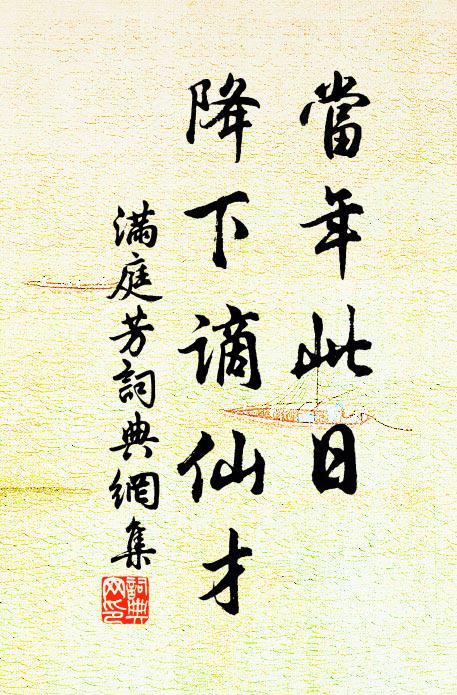 當年此日
降下謫仙才
滿庭芳詞典網集
詞典
网印